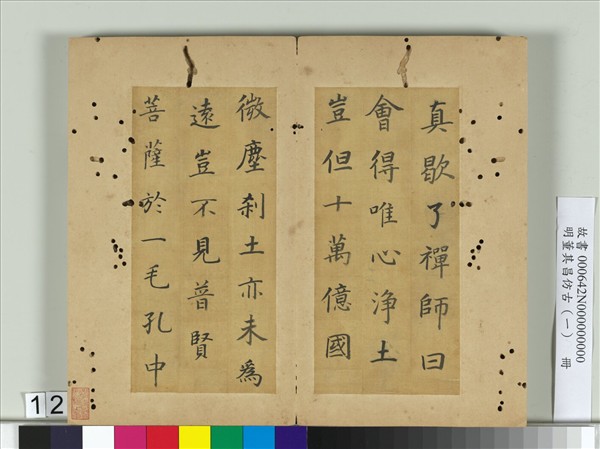 真歇了禪師曰
會得唯心淨土
豈但十萬億國
微塵刹土亦未為
遠豈不見普賢
菩薩於一毛孔中
故書 000642N000000000
明董其昌仿古（一） 冊
12